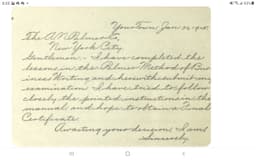 Your Town, Jan.
The A. N. Palmer Co.,
New York City.
Gentlemen: I have completed the
lessons in the Palmer Method of Bus-
iness Writing and herewith submit my
examination. I have tried to follow
closely the printed instructions in the
manual and hope to obtain a Final
Certificate.
Awaiting your decision, I am
Sincerely,